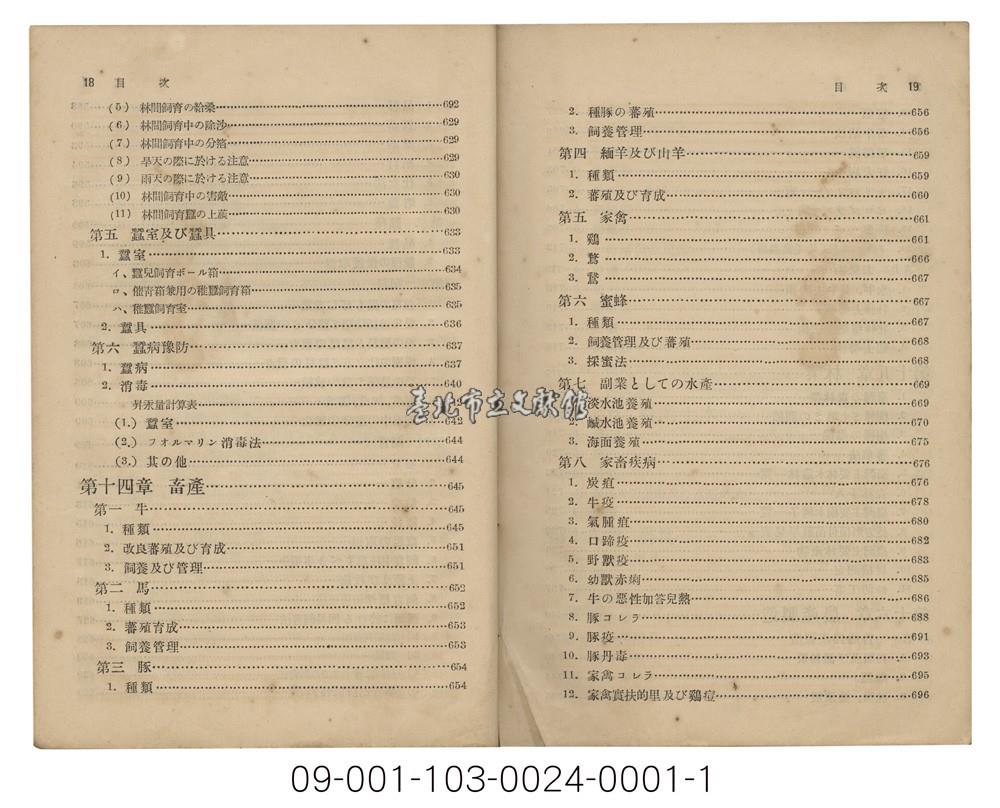 18 目 次
(5) 林間飼育の給桑 692
(6) 林間飼育中の除沙 629
(7) 林間飼育中の分箔 629
(8) 旱天の際に於ける注意 629
(9) 雨天の際に於ける注意 630
(10) 林間飼育中の害敵 630
(11) 林間飼育蠶の上蔟 630
第五 蠶室及び蠶具 633
1. 蠶室 633
イ、蠶兒飼育ボール箱 634
ロ、催靑箱兼用の稚蠶飼育箱 635
ハ、稚蠶飼育室 635
2. 蠶具 636
第六 蠶病豫防 637
1. 蠶病 637
2. 消毒 640
昇汞量計算表
(1.) 蠶室 642
(2.) フオルマリン消毒法 644
(3.) 其の他 644
第十四章 畜產 645
第一 牛 645
1. 種類 645
2. 改良蕃殖及び育成 651
3. 飼養及び管理 651
第二 馬 652
1. 種類 652
2. 蕃殖育成 653
3. 飼養管理 653
第三 豚 654
1. 種類 654
目 次 19
2. 種豚の蕃殖 656
3. 飼養管理 656
第四 緬羊及び山羊 659
1. 種類 659
2. 蕃殖及び育成 660
第五 家禽 661
1. 鷄 661
2. 鶩 666
3. 鵞 667
第六 蜜蜂 667
1. 種類 667
2. 飼養管理及び蕃殖 668
3. 採蜜法 668
第七 副業としての水產 669
淡水池養殖 669
2. 鹹水池養殖 670
3. 海面養殖 675
第八 家畜疾病 676
1. 炭疽 676
2. 牛疫 678
3. 氣腫疽 680
4. 口蹄疫 682
5. 野獸疫 683
6. 幼獸赤痢 685
7. 牛の惡性加答兒熱 686
8. 豚コレラ 688
9. 豚疫 691
10. 豚丹毒 693
11. 家禽コレラ 695
12. 家禽實扶的里及び鷄痘 696
臺北市立文獻館
09-001-103-0024-0001-1